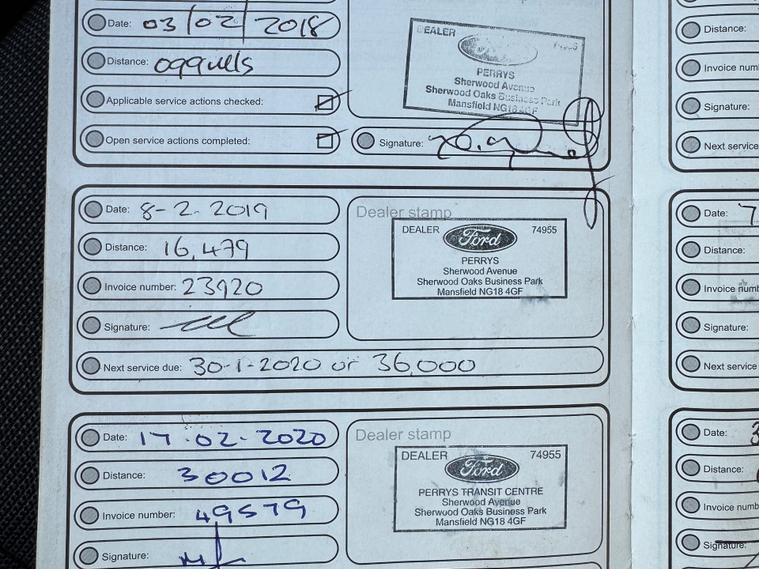 Date: 03/02/2018
Distance:
Applicable service actions checked:
Open service actions completed:
DEALER 74955
PERRYS
Sherwood Avenue
Sherwood Oaks Business Park
Mansfield NG18 4GF
Signature:
Date: 8-2-2019
Distance: 16,479
Invoice number: 23920
Signature:
Next service due: 30-1-2020 or 36,000
Dealer stamp
DEALER 74955
Ford
PERRYS
Sherwood Avenue
Sherwood Oaks Business Park
Mansfield NG18 4GF
Date: 17-02-2020
Distance: 30012
Invoice number: 49579
Signature:
Dealer stamp
DEALER 74955
Ford
PERRYS TRANSIT CENTRE
Sherwood Avenue
Sherwood Oaks Business Park
Mansfield NG18 4GF
Distance:
Invoice num
Signature:
Next service
Date: 7
Distance:
Invoice numb
Signature:
Next service
Date: 3
Distance:
Invoice numb
Signature: